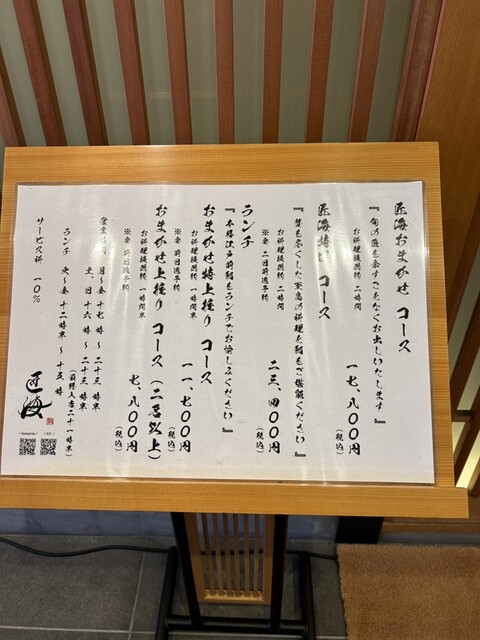 匠海おまかせ コース
『旬の魚を余すことなくお出しいたします』
お料理提供約 二時間
一七、八〇〇円
(税込)
匠海特選 コース
『贅を尽くした至高の料理と鮨をご堪能ください』
お料理提供約 二時間
※要 二日前迄予約
二三、四〇〇円
(税込)
ランチ
『本格江戸前鮨をランチでお愉しみください』
おまかせ特上握り コース
お料理提供約 一時間半
※要 前日迄予約
一一、七〇〇円
(税込)
おまかせ上握り コース(二名以上)
お料理提供約 一時間
※要 前日迄予約
七、八〇〇円
(税込)
営業時間
月~金 十七時 ~ 二十三時半
土、日 十六時 ~ 二十三時半
(最終入店二十一時半)
ランチ 火~金 十二時半 ~ 十五時
サービス料 一〇%
匠海